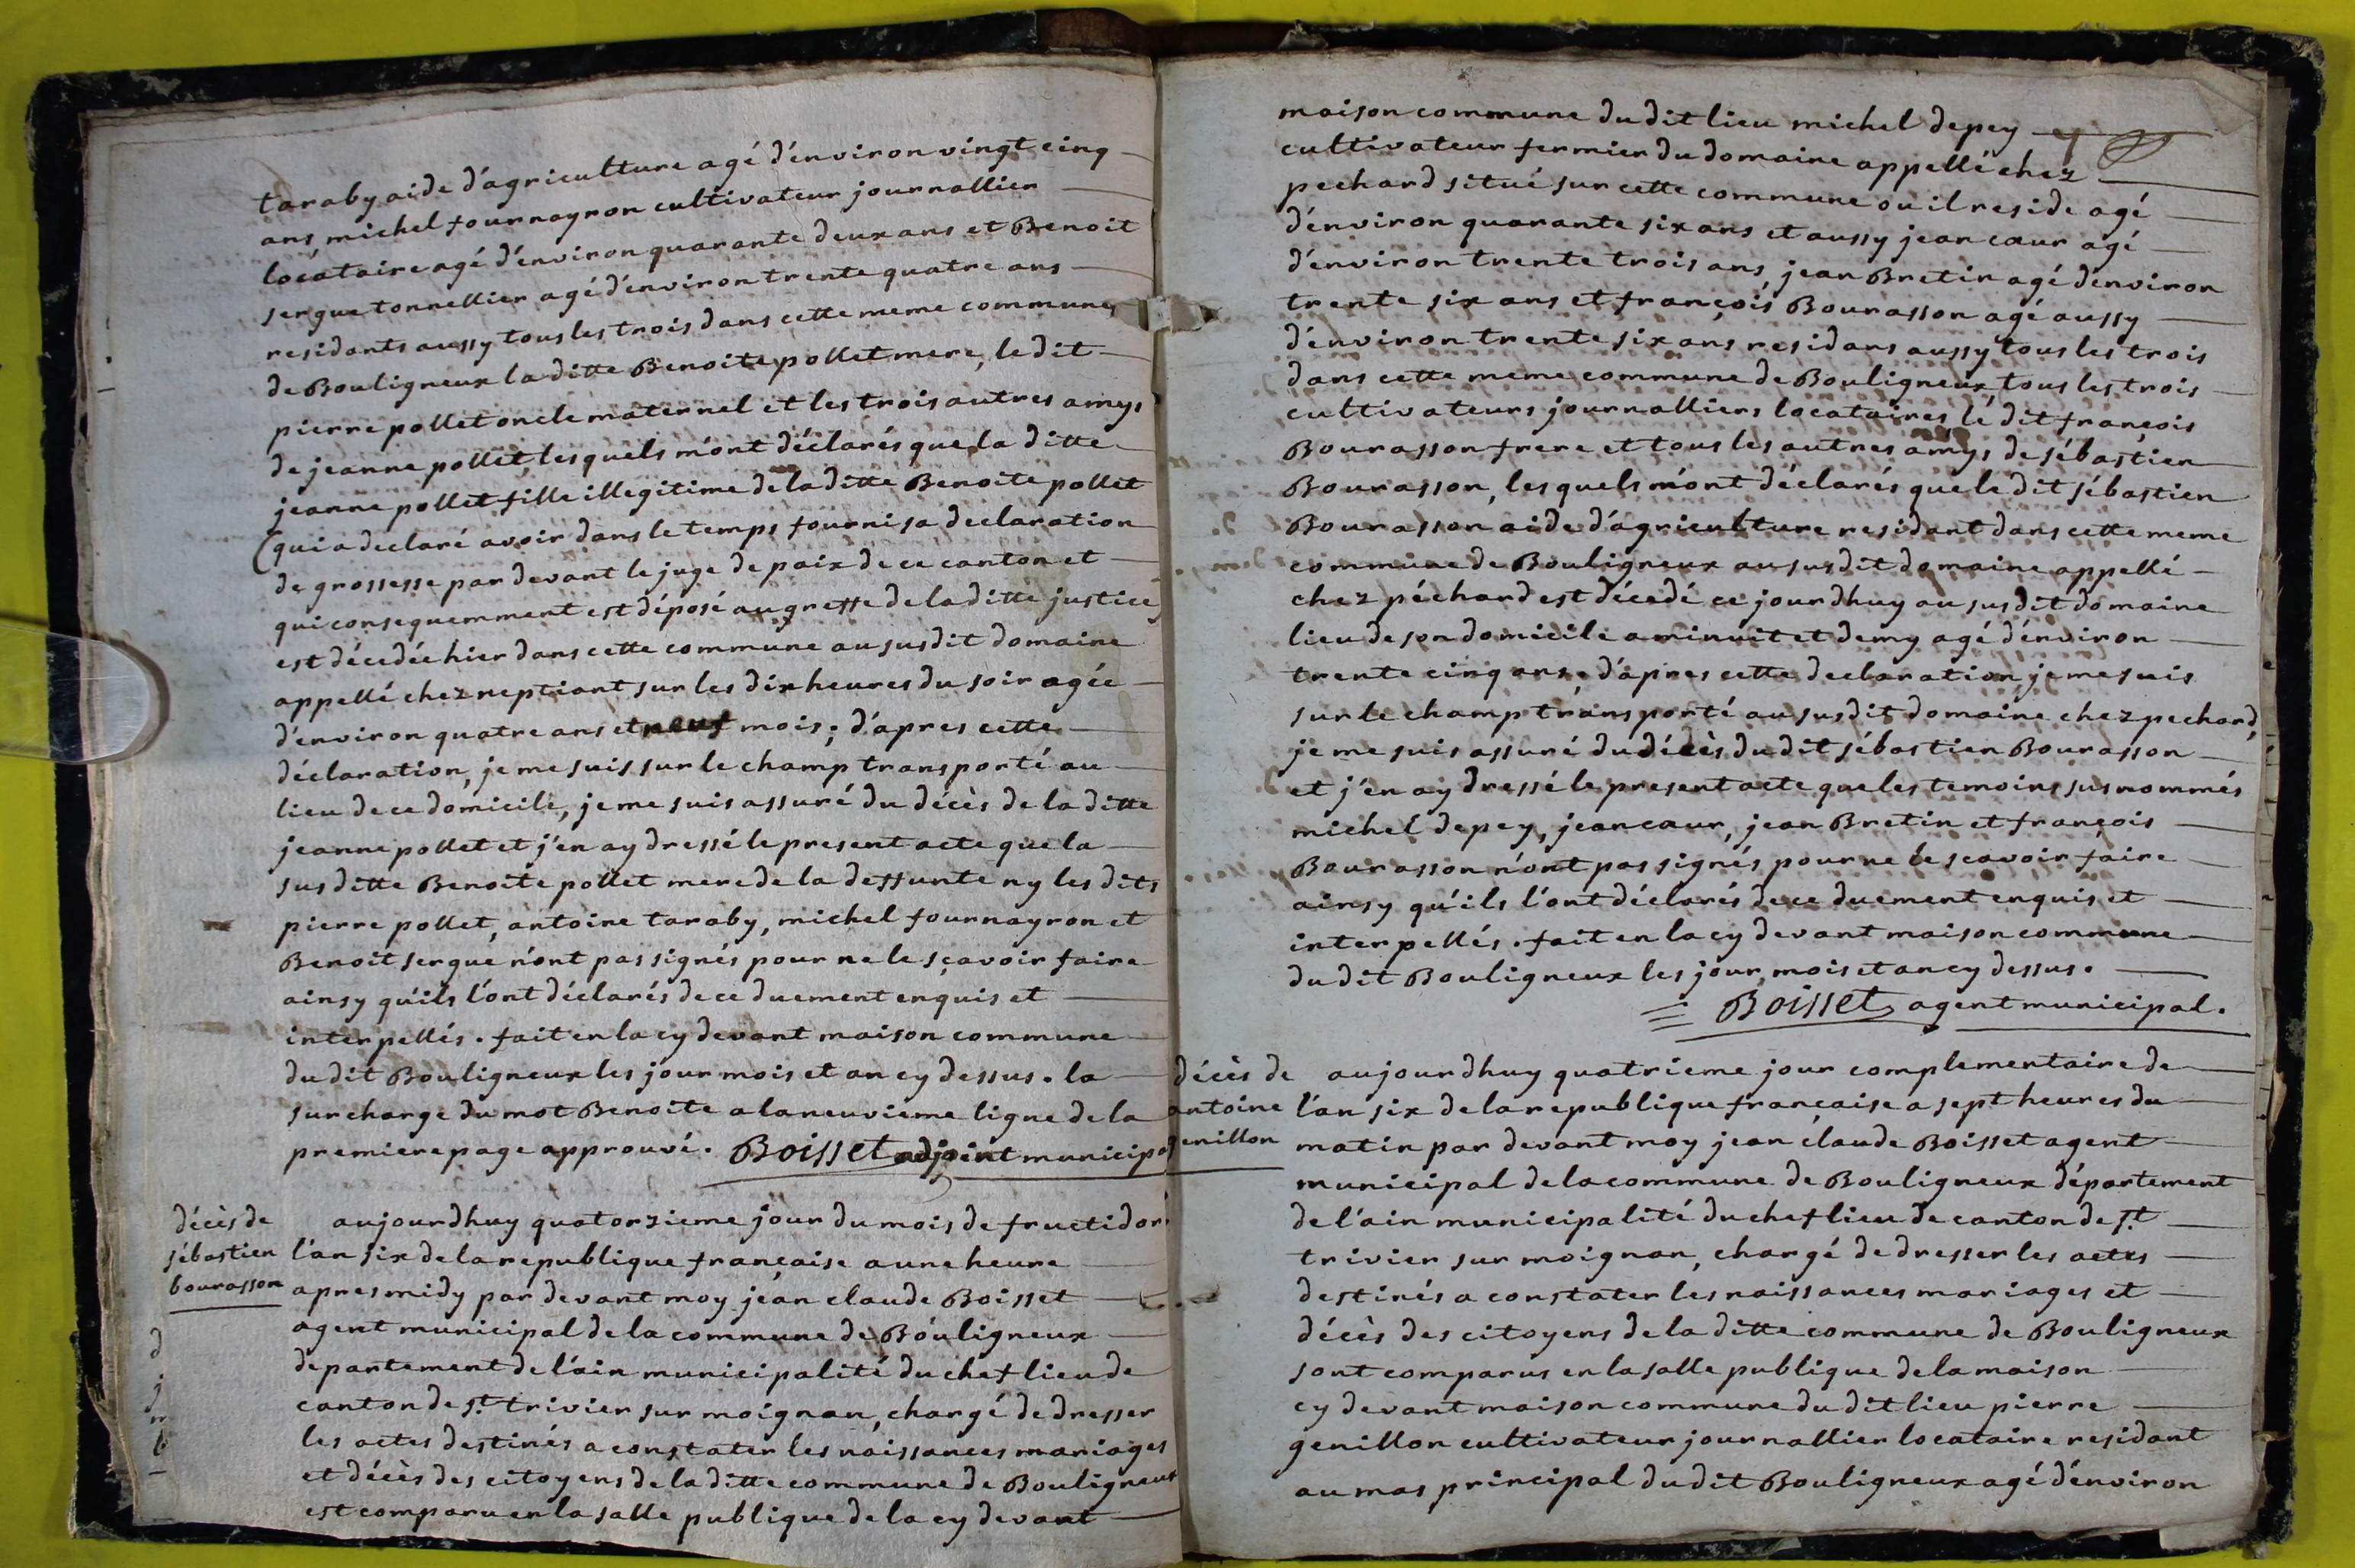 taraby aide d'agriculture agé d'environ vingt cinq
ans, michel fournayron cultivateur journallier
locataire agé d'environ quarante deux ans et Benoit
sergue tonnellier agé d'environ trente quatre ans
residants aussy tous les trois dans cette meme commune
de Bouligneux la ditte Benoite pollet mere, le dit
pierre pollet oncle maternel et les trois autres amys
de jeanne pollet, les quels m'ont déclarés que la ditte
jeanne pollet fille illegitime de la ditte Benoite pollet
(qui a declaré avoir dans le temps fourni sa declaration
de grossesse par devant le juge de paix de ce canton et
qui consequemment est déposé au greffe de la ditte justice)
est décedée hier dans cette commune au susdit domaine
appellé chez neptiant sur les dix heures du soir agée
d'environ quatre ans et neuf mois; d'apres cette
déclaration, je me suis sur le champ transporté au
lieu de ce domicile, je me suis assuré du décès de la ditte
jeanne pollet et j'en ay dressé le present acte que la
sus ditte Benoite pollet mere de la deffunte ny les dits
pierre pollet, antoine taraby, michel fournayron et
Benoit sergue n'ont pas signés pour ne le sçavoir faire
ainsy qu'ils l'ont déclarés de ce duement enquis et
interpellés. fait en la cy devant maison commune
du dit Bouligneux les jour mois et an cy dessus. la
surcharge du mot Benoite a la neuvieme ligne de la
premiere page approuvé. Boisset adjoint municipal
décès de
sébastien
bourasson
aujourdhuy quatorzieme jour du mois de fructidor
l'an six de la republique française a une heure
apres midy par devant moy jean claude Boisset
agent municipal de la commune de Bouligneux
departement de l'ain municipalité du chef lieu de
canton de st. trivier sur moignan, chargé de dresser
les actes destinés a constater les naissances mariages
et décès des citoyens de la ditte commune de Bouligneux
est comparu en la salle publique de la cy devant
maison commune du dit lieu michel depey
cultivateur fermier du domaine appellé chez
pechard situé sur cette commune ou il reside agé
d'environ quarante six ans et aussy jean cœur agé
d'environ trente trois ans, jean Bretin agé d'environ
trente six ans et françois Bourasson agé aussy
d'environ trente six ans residans aussy tous les trois
dans cette meme commune de Bouligneux, tous les trois
cultivateurs journalliers locataires, le dit françois
Bourasson frere et tous les autres amys de sébastien
Bourasson, les quels m'ont déclarés que le dit sébastien
Bourasson aide d'agriculture residant dans cette meme
commune de Bouligneux au susdit domaine appellé
chez péchard est décedé ce jourdhuy au susdit domaine
lieu de son domicile a minuit et demy agé d'environ
trente cinq ans. d'apres cette declaration, je me suis
sur le champ transporté au susdit domaine chez pechard,
je me suis assuré du décès du dit sébastien Bourasson
et j'en ay dressé le present acte que les temoins sus nommés
michel depey, jean cœur, jean Bretin et françois
Bourasson n'ont pas signés pour ne le scavoir faire
ainsy qu'ils l'ont déclarés de ce duement enquis et
interpellés. fait en la cy devant maison commune
du dit Bouligneux les jour, mois et an cy dessus.
Boisset agent municipal.
décès de
antoine
genillon
aujourdhuy quatrieme jour complementaire de
l'an six de la republique française a sept heures du
matin par devant moy jean claude Boisset agent
municipal de la commune de Bouligneux département
de l'ain municipalité du chef lieu de canton de st.
trivier sur moignan, chargé de dresser les actes
destinés a constater les naissances mariages et
décès des citoyens de la ditte commune de Bouligneux
sont comparus en la salle publique de la maison
cy devant maison commune du dit lieu pierre
genillon cultivateur journallier locataire residant
au mas principal du dit Bouligneux agé d'environ